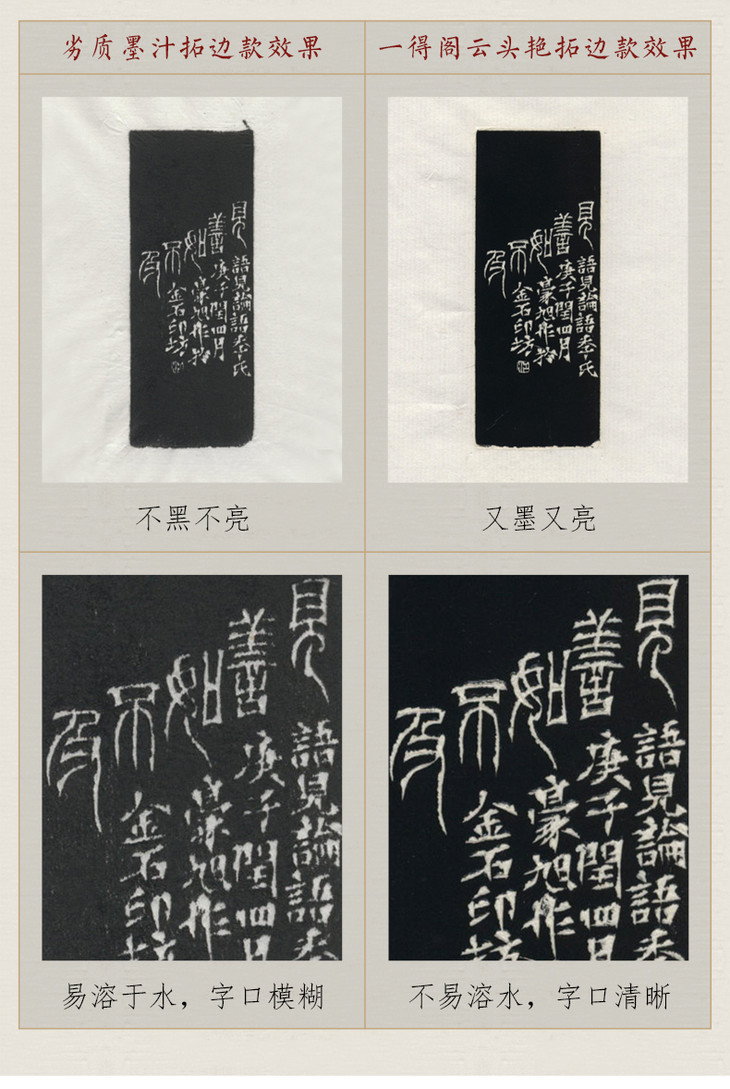 劣质墨汁拓边款效果
一得阁云头艳拓边款效果
見
善
如
不
及
語見論語季氏
庚子閏四月
豪旭作於
金石印坊
見
善
如
不
及
語見論語季氏
庚子閏四月
豪旭作於
金石印坊
不黑不亮
又墨又亮
見
善
如
不
及
語見論語季
庚子閏四月
豪旭作
金石印坊
見
善
如
不
及
語見論語季
庚子閏四月
豪旭作
金石印坊
易溶于水，字口模糊
不易溶水，字口清晰